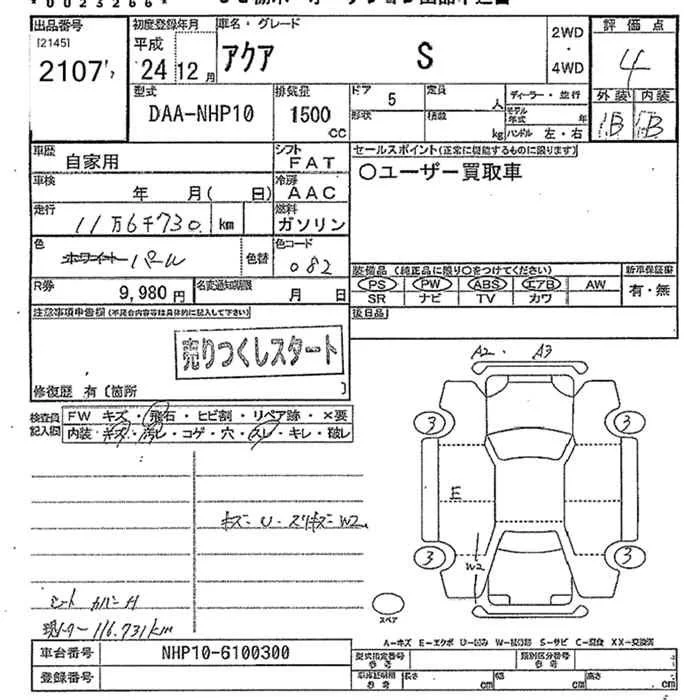 *0023266*
出品番号
初度登録年月
車名・グレード
評価点
[2145]
2107
平成
24
12
月
アクア
S
2WD
・
4WD
4
外装
内装
B
B
型式
DAA-NHP10
排気量
1500
CC
ドア
5
形状
定員
人
積載
kg
ディーラー・並行
モデル
年式
年
ハンドル 左・右
車歴
自家用
シフト
FAT
セールスポイント(正常に機能するものに限ります)
〇ユーザー買取車
車検
年 月( 日)
冷房
AAC
走行
11万6千730
km
燃料
ガソリン
色
ホワイト パール
色替
色コード
082
装備品 (純正品に限り〇をつけてください)
新車保証書
PS
PW
ABS
エアB
AW
有・無
SR
ナビ
TV
カワ
R券
9,980 円
名変通知期限
月 日
後日品
注意事項申告欄 (不具合内容等は具体的に記入して下さい)
売りつくしスタート
修復歴 有〔箇所 〕
A2・ A3
検査員
記入欄
FW キズ・飛石・ヒビ割・リペア跡・×要
内装・キズ・汚レ・コゲ・穴・スレ・キレ・破レ
3
3
E
キズ U・スリキズ W2
3
3
W2
シート カバー
スペア
116.731km
A-キズ E-エクボ U-凹み S-サビ C-腐食 XX-交換済
車台番号
NHP10-6100300
型式指定番号
参考
類別区分番号
参考
登録番号
車庫証明用
参考
長さ
cm
幅
cm
高さ
cm